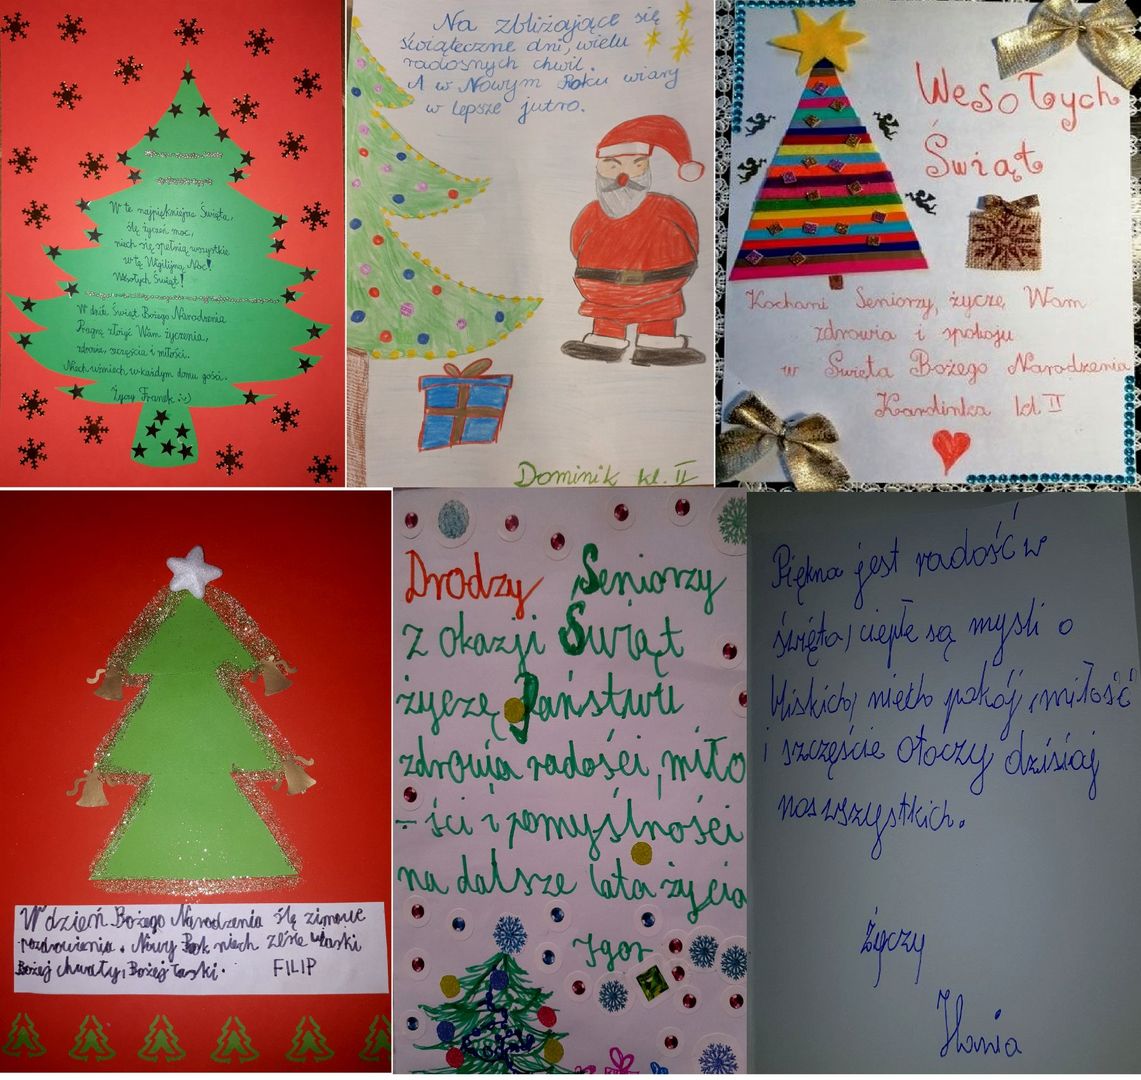 W te najpiękniejsze Święta,
ślę życzeń moc,
niech się spełnią wszystkie
w tą Wigilijną Noc!
Wesołych Świąt!
W dzień Świąt Bożego Narodzenia
Pragnę złożyć Wam życzenia,
zdrowia, szczęścia i miłości.
Niech uśmiech, w każdym domu gości.
Życzy Franek :-)
Na zbliżające się
świąteczne dni, wielu
radosnych chwil.
A w Nowym Roku wiary
w lepsze jutro.
Dominik kl. II
Wesołych
Świąt
Kochani Seniorzy, życzę Wam
zdrowia i spokoju
w Święta Bożego Narodzenia
Karolinka kl II
W dzień Bożego Narodzenia ślę zimowe
pozdrowienia. Nowy Rok niech ześle
Bożej chwały, Bożej łaski.
FILIP
Drodzy Seniorzy
Z okazji Świąt
życzę Państwu
zdrowia radości, miło
- ści i pomyślności
na dalsze lata życia
Igor
Piękna jest radość w
święta, ciepłe są myśli o
bliskich, niech pokój, miłość
i szczęście otoczy dzisiaj
nas wszystkich.
Życzy
Hania